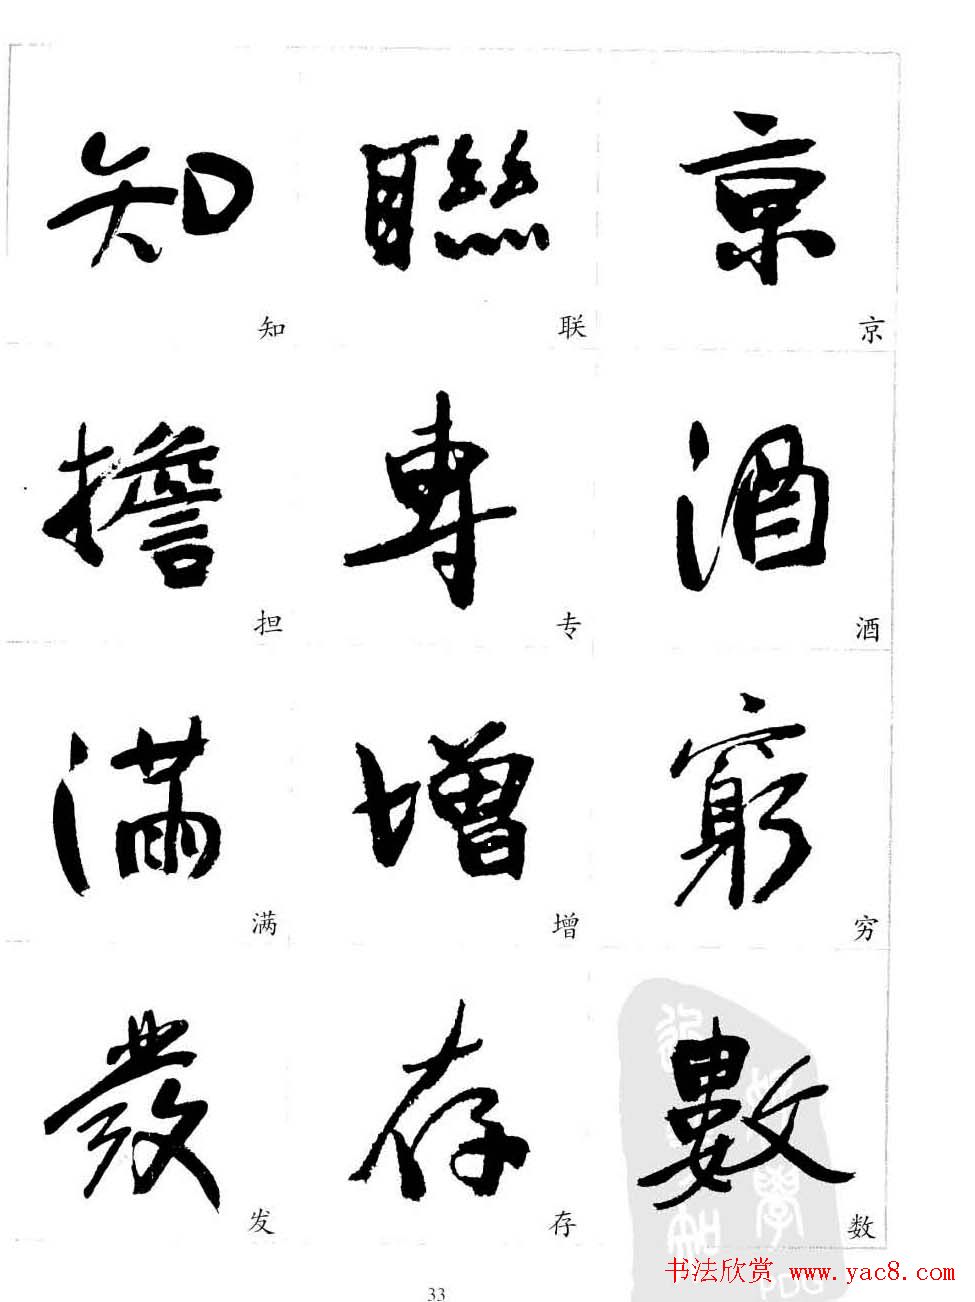 知 聯 京
知 联 京
擔 專 酒
担 专 酒
滿 增 窮
满 增 穷
發 存 數
发 存 数
书法欣赏 www.yac8.com
33